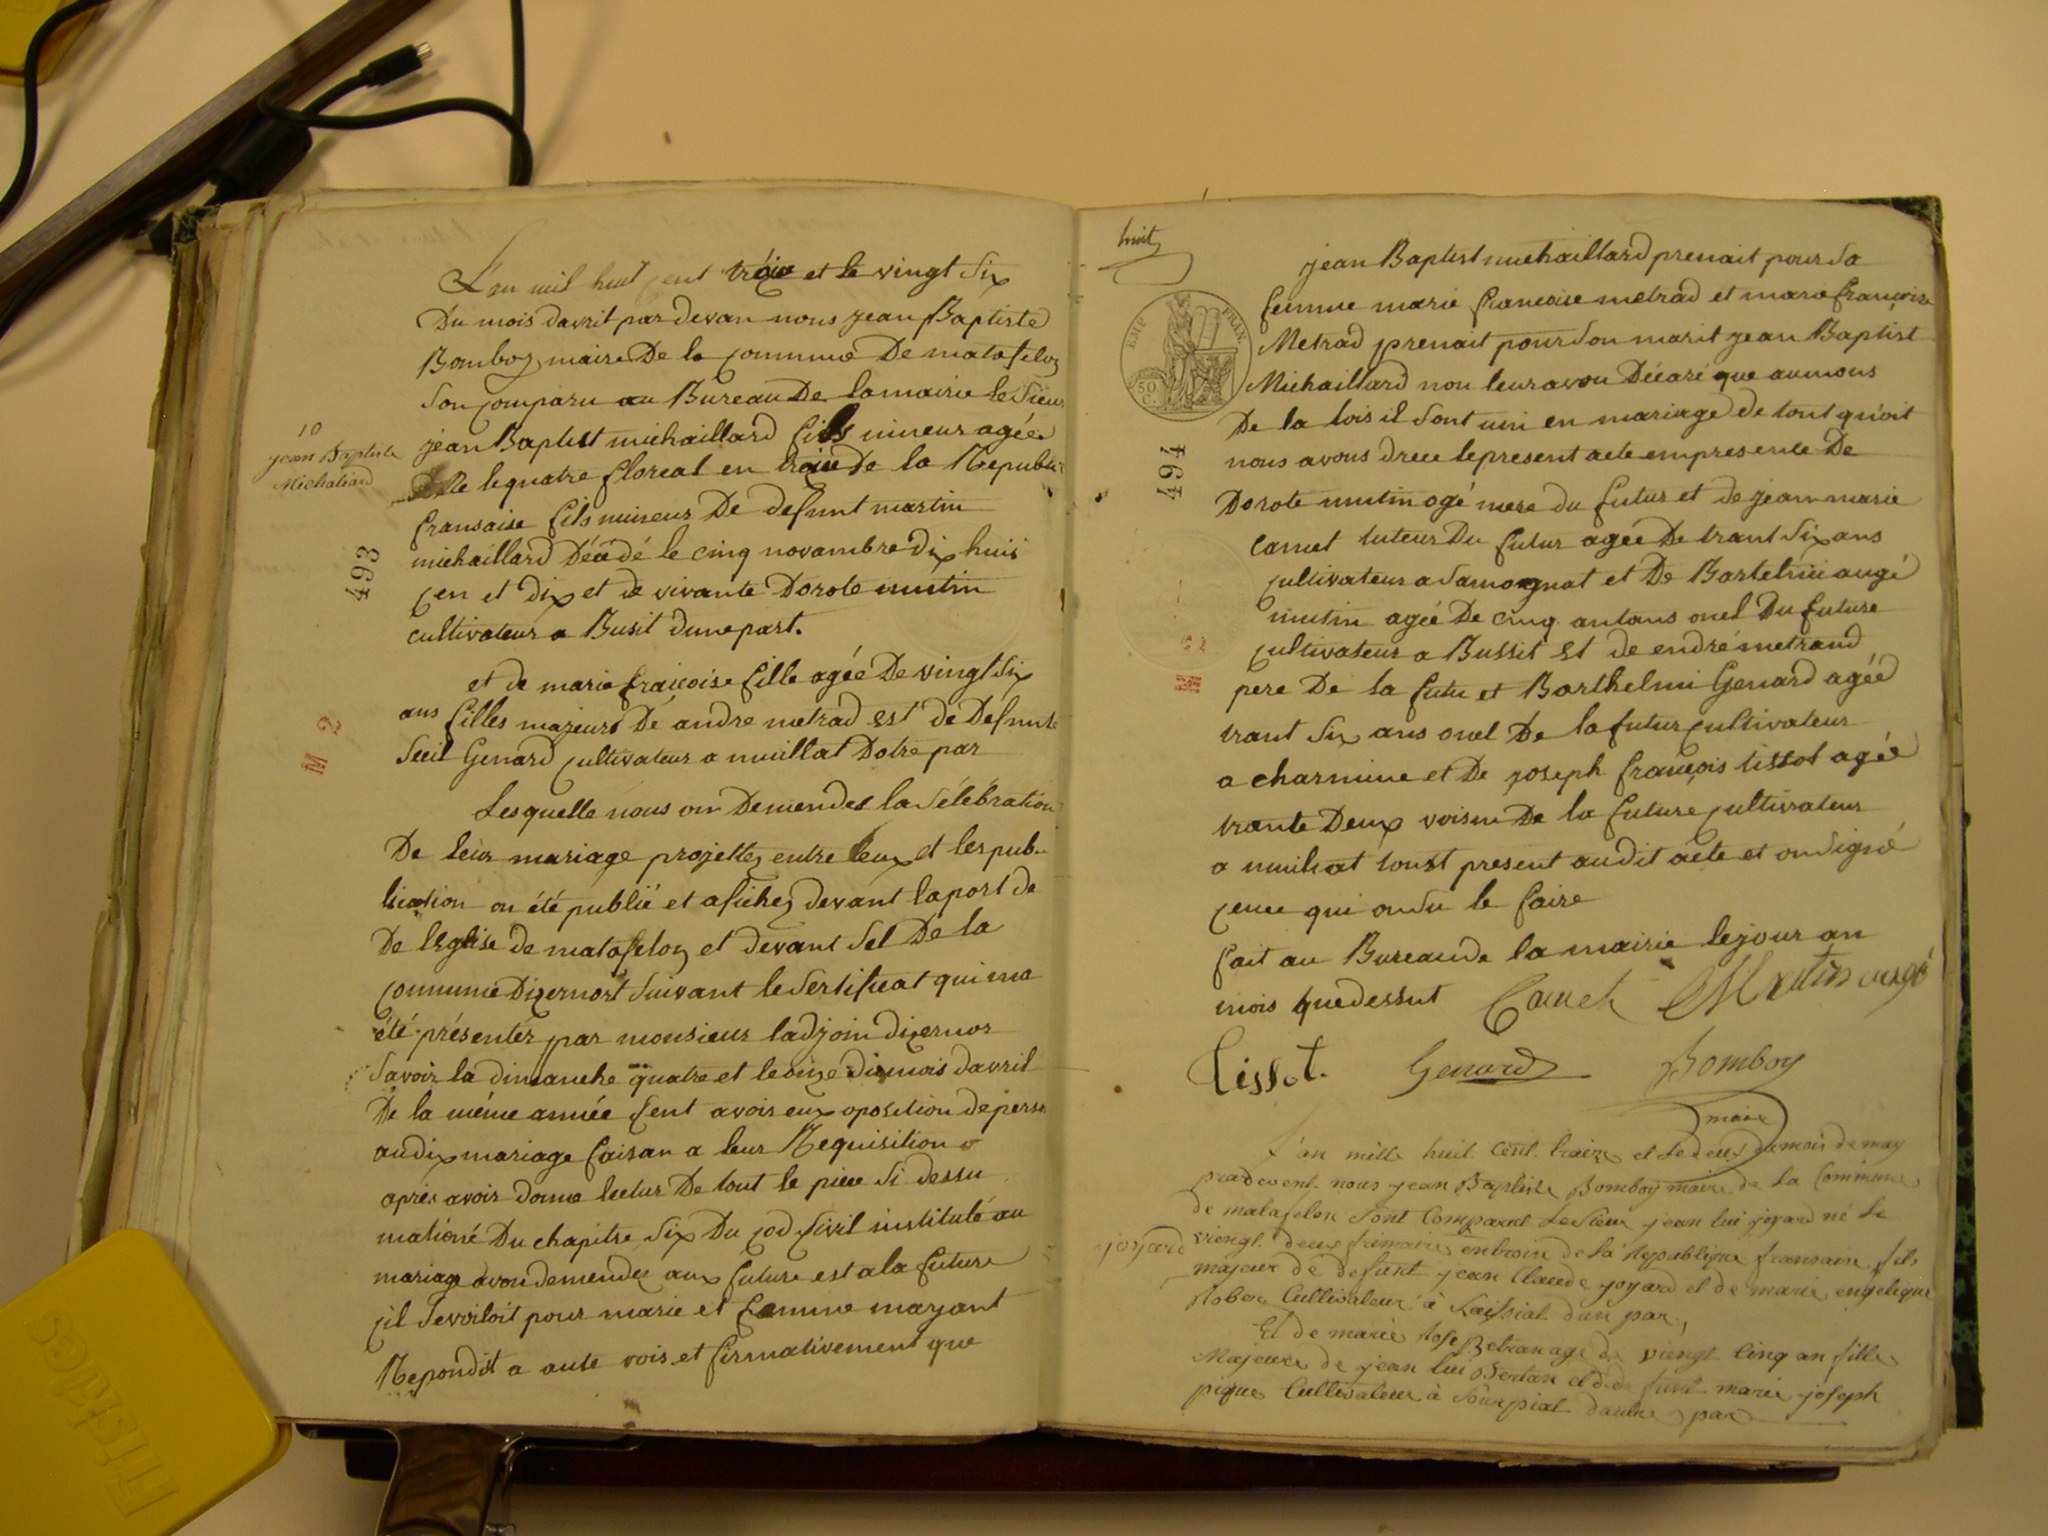 L'an mil huit cent trèze et le vingt six
Du mois davril par devan nous jean Baptiste
Bomboy maire De la commune De matafelon
Son comparu au Bureau De la mairie le Sieur
jean Baptist michaillard fils mineur agée
De le quatre floreal en traize De la Republi
fransaise fils mineur De defunt martin
michaillard Décédé le cinq novambre dix huis
cen et dix et de vivante Dorote mutin
cultivateur a Busit dune part.
et de marie fraiçoise fille agée De vingt six
ans filles majeure De andre metrad est de Defunte
Genard cultivateur a nuillat Dotre par
Lesquelle nous on Demendes la Sélébration
De leur mariage projettez entre leux et les pub-
lication on été publié et afichez devant la port de
De lEglise de matafelon et devant Sel De la
commune Dizernort Suivant le Sertificat qui ma
été présentér par monsieur ladjoin dizernor
Savoir la dimanche quatre et le onze du mois davril
De la même année Sent avoir eux oposition de perso
audix mariage faisan a leur Requisition
après avoir donne lectur De tout le piece Si dessu
mationé Du chapitre Six Du cod Sivil institulé au
mariage avon demendez aux future est a la future
çil Sevoiloit pour marie et famme mayant
Repondit a aute vois et firmativement que
10
jean Baptiste
Michaliard
493
M 2
huit
EMP FRAN.
50 C.
494
jean Baptist michaillard prenait pour Sa
femme marie francoise metrad et marie francoise
Metrad prenait pour Son marit jean Baptist
Michaillard nou leur avon Décaré que aunons
De la lois il Sont uni en mariage de tout qu'oit
nous avons drece le present acte en presente De
Dorote mutin ogé mere du futur et de jean marie
Carnet tuteur Du futur agée De trant Six ans
cultivateur a Samognat et De Bartelmi augé
mutin agée De cinq antans onel Du future
cultivateur a Bussit et de endré metraud
pere De la futu et Barthelmi Genard agéé
trant Six ans onel De la futur cultivateur
a charmine et De joseph françois tissot agéé
trante Deux voisin De la future cultivateur
a nuiliat toust present audit acte et on digné
ceuce qui on Su le faire
fait au Bureau de la mairie le jour an
mois que dessut Carnet Mutin augé
Tissot. Genard Bomboy
maire
L'an mille huit cent traize et le deux du mois de may
pardevent nous jean Baptiste Bomboy maire de la Commune
de matafelon Sont Comparut Le Sieur jean lui joyard né le
viengt deux frimaire en troix de la Republique fransaise fils
majeur de defunt jean Claude joyard et de marie engelique
Robin Cultivateur à d'un par,
Et de marie Rose Betran agé de viengt cinq an fille
Majeure de jean lui Bertan et de funt marie joseph
pique Cultivateur à daulre par
joyard